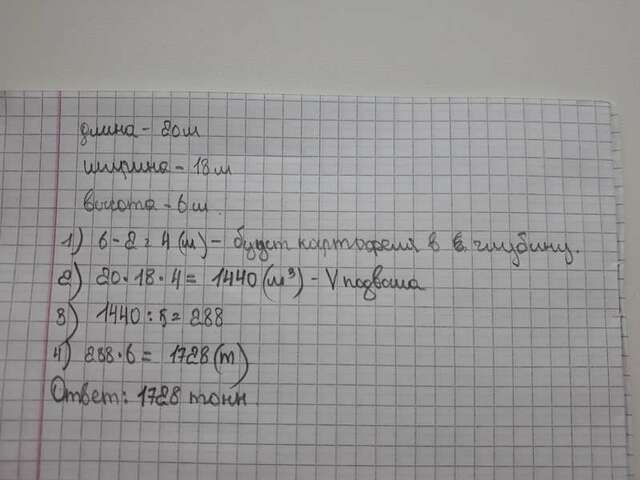 длина - 20м
ширина - 18м
высота - 6м.
1) 6-2=4(м) - будет картофеля в глубину.
2) 20·18·4= 1440(м³) - V подвала
3) 1440:5=288
4) 288·6= 1728(т)
Ответ: 1728 тонн